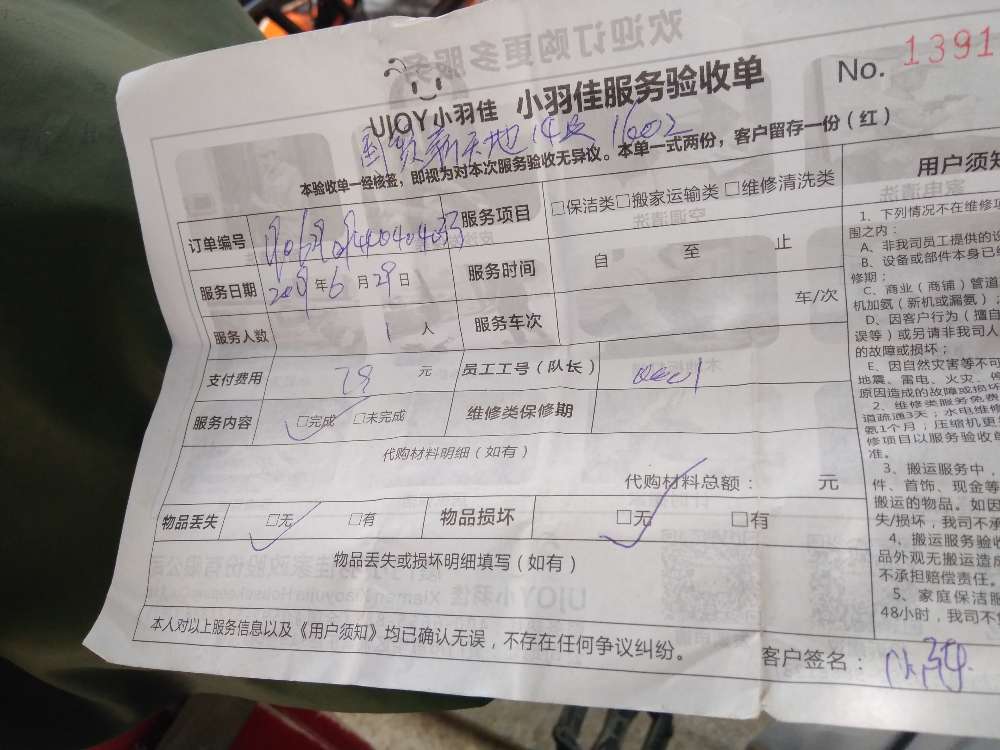 No. 1391
UJOY小羽佳 小羽佳服务验收单
14 1602
本验收单一经核签，即视为对本次服务验收无异议。本单一式两份，客户留存一份（红）
订单编号
服务项目 □保洁类□搬家运输类□维修清洗类
服务日期 2019年6月29日
服务时间 自 至 止
服务人数 1人
服务车次 车/次
支付费用 元
员工工号（队长）
服务内容 □完成 □未完成
维修类保修期
代购材料明细（如有）
代购材料总额： 元
物品丢失 □无 □有
物品损坏 □无 □有
物品丢失或损坏明细填写（如有）
本人对以上服务信息以及《用户须知》均已确认无误，不存在任何争议纠纷。
客户签名：
用户须知
1、下列情况不在维修项
围之内：
A、非我司员工提供的设
B、设备或部件本身已
修期；
C、商业（商铺）管道
机加氨（新机或漏氨）
D、因客户行为（擅自
误等）或另请非我司人
的故障或损坏；
E、因自然灾害等不可
地震、雷电、火灾、
原因造成的故障或损坏
2、维修类服务免费
道疏通3天；水电维修
氨1个月；压缩机更
修项目以服务验收单
准。
3、搬运服务中，
件、首饰、现金等
搬运的物品。如因
失/损坏，我司不承
4、搬运服务验收
品外观无搬运造成
不承担赔偿责任。
5、家庭保洁服
48小时，我司不